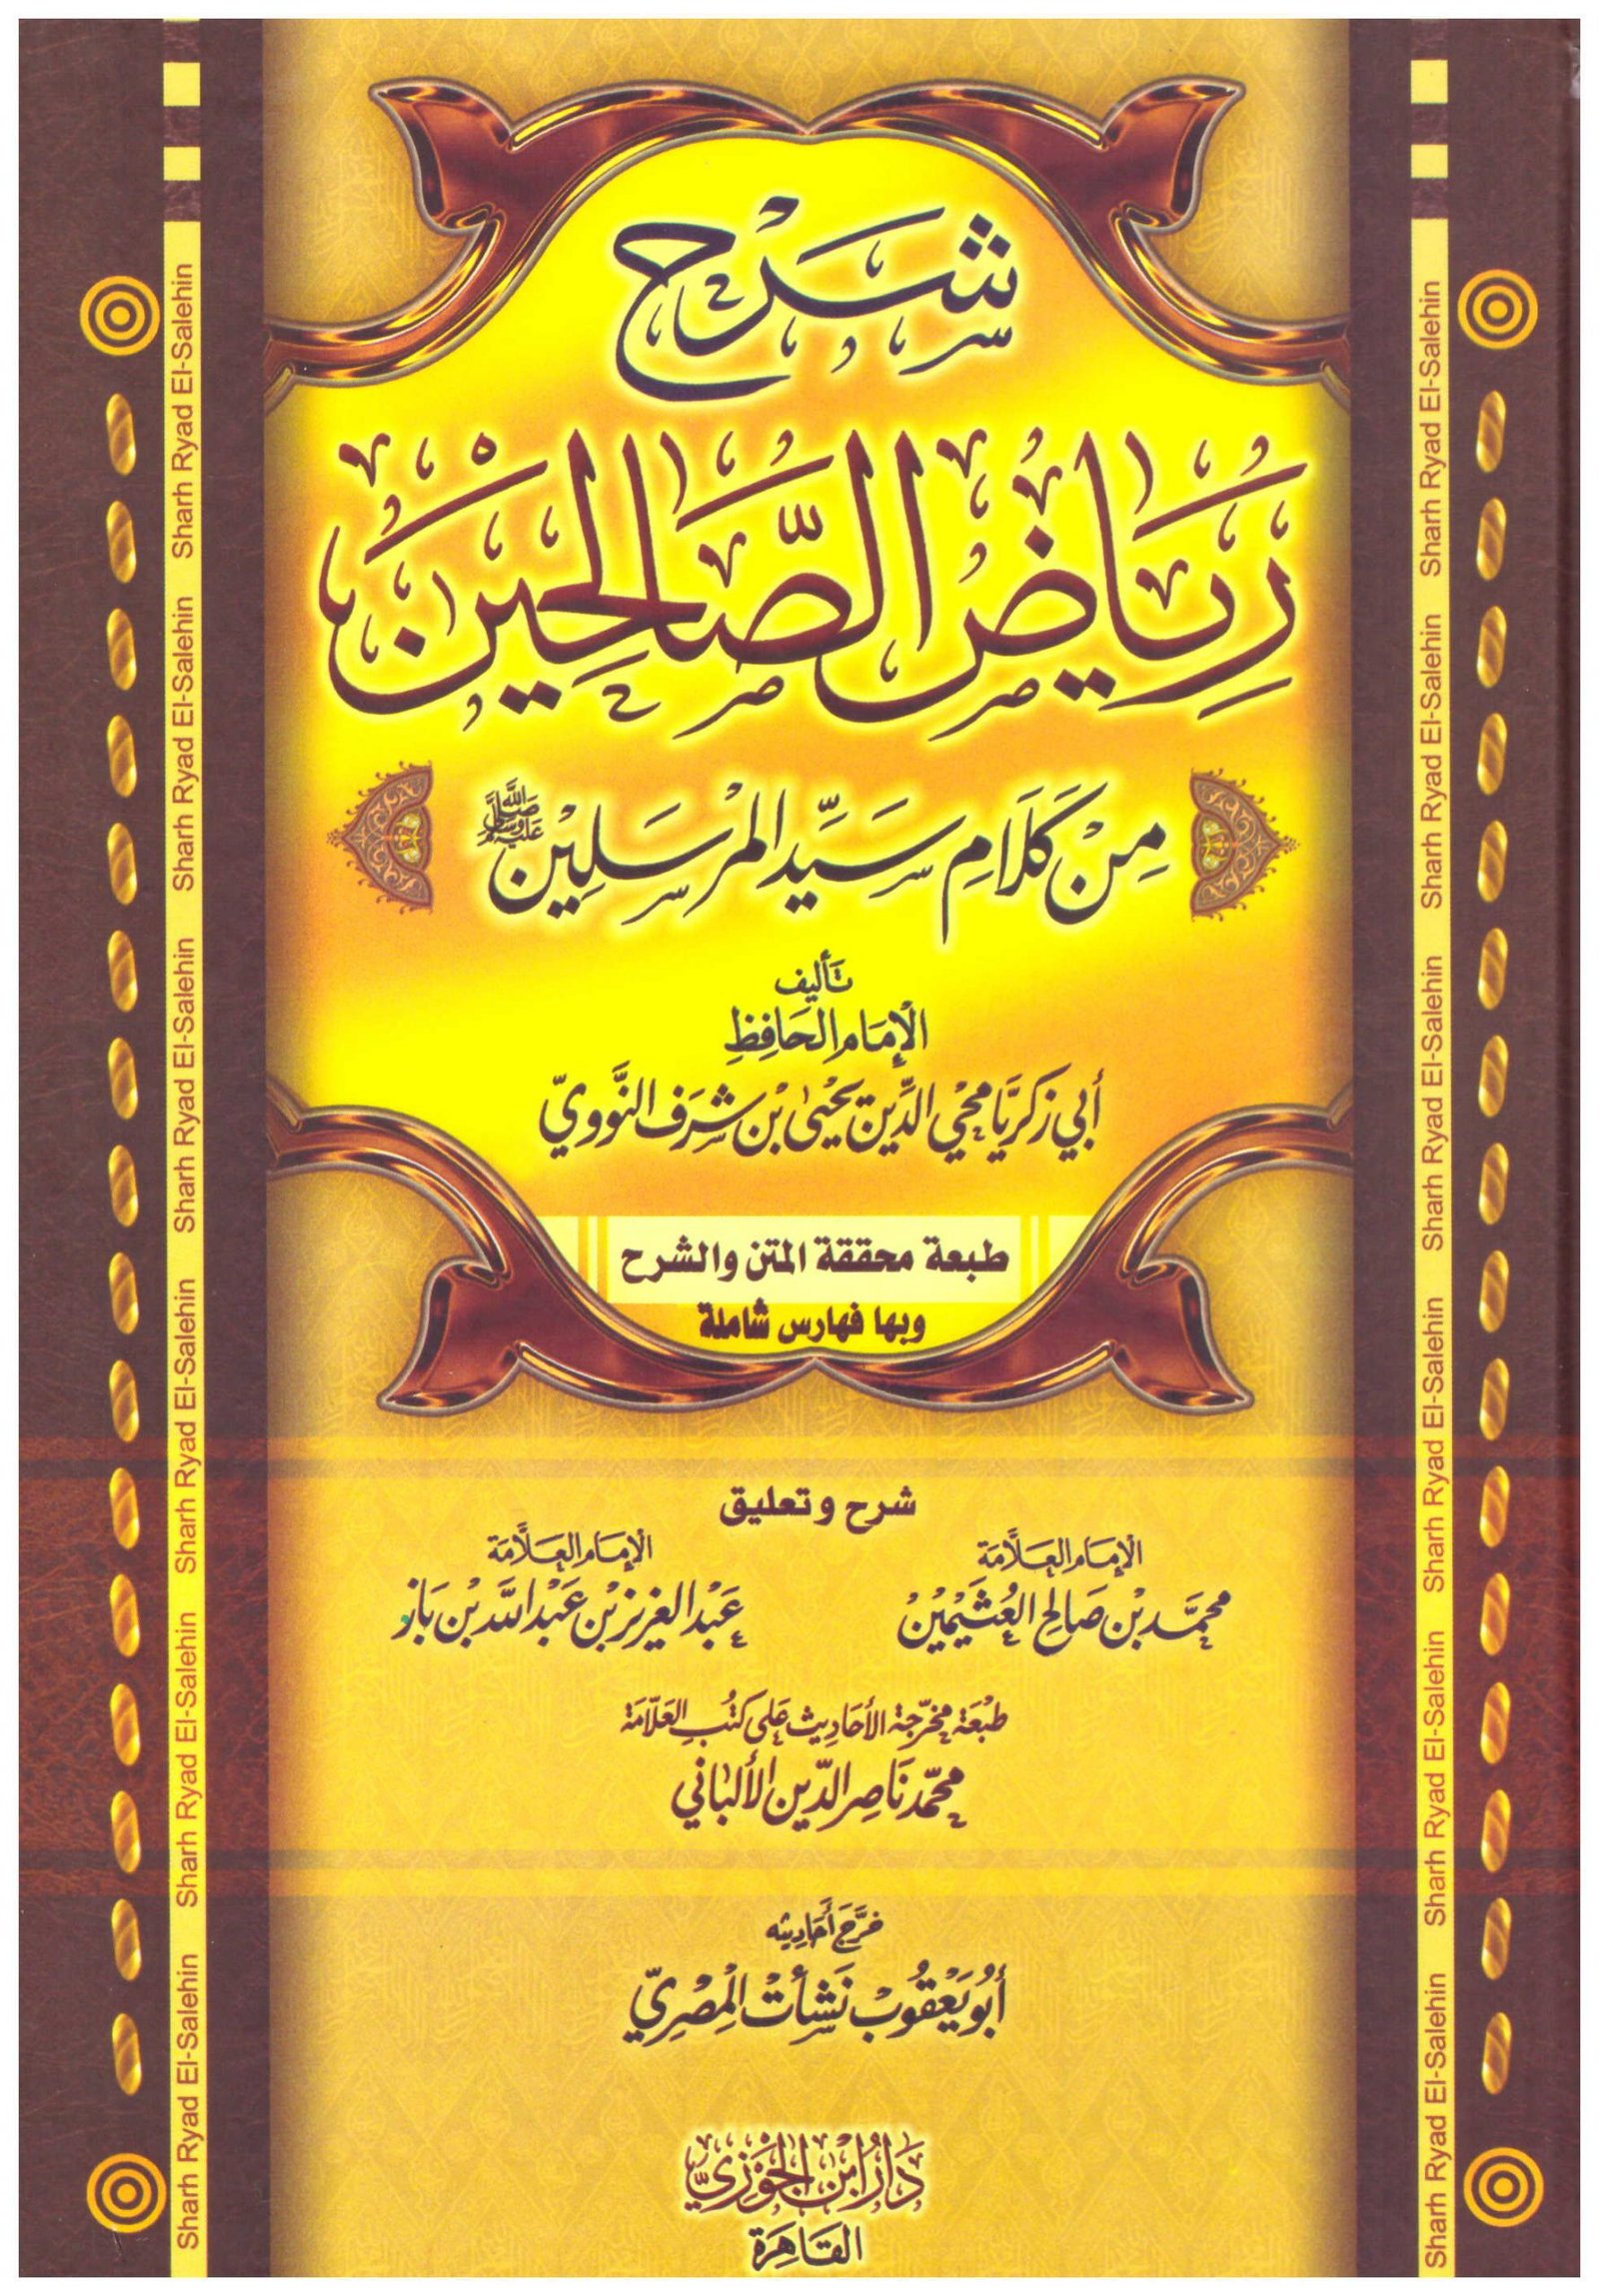 شرح
رِيَاضُ الصَّالِحِينَ
مِنْ كَلَامِ سَيِّدِ المُرْسَلِيْنَ ﷺ
تَأليف
الإِمَامِ الحَافِظِ
أَبِي زَكَرِيَّا مُحْيِي الدِّين يَحْيَىٰ بْن شَرَف النَّوَوِيّ
طبعة محققة المتن والشرح
وبها فهارس شاملة
شرح وتعليق
الإِمَامِ العَلَّامَة
مُحَمَّد بْن صَالِح العُثَيْمِيْن
الإِمَامِ العَلَّامَة
عَبْد العَزِيز بْن عَبْد اللَّه بْن بَاز
طَبْعَة مُخَرَّجَة الأَحَادِيث عَلَى كُتُبِ العَلَّامَة
مُحَمَّد نَاصِر الدِّين الأَلْبَانِي
خَرَّجَ أَحَادِيثه
أَبُو يَعْقُوبْ نَشْأَتْ المِصْرِيّ
دَارُ ابْن الجَوْزِيّ
القَاهِرَة
Sharh Ryad El-Salehin Sharh Ryad El-Salehin Sharh Ryad El-Salehin Sharh Ryad El-Salehin Sharh Ryad El-Salehin Sharh Ryad El-Salehin
Sharh Ryad El-Salehin Sharh Ryad El-Salehin Sharh Ryad El-Salehin Sharh Ryad El-Salehin Sharh Ryad El-Salehin Sharh Ryad El-Salehin